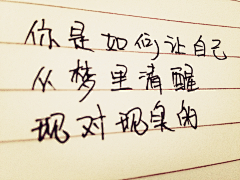 你是如何让自己
从梦里清醒
现对现实的